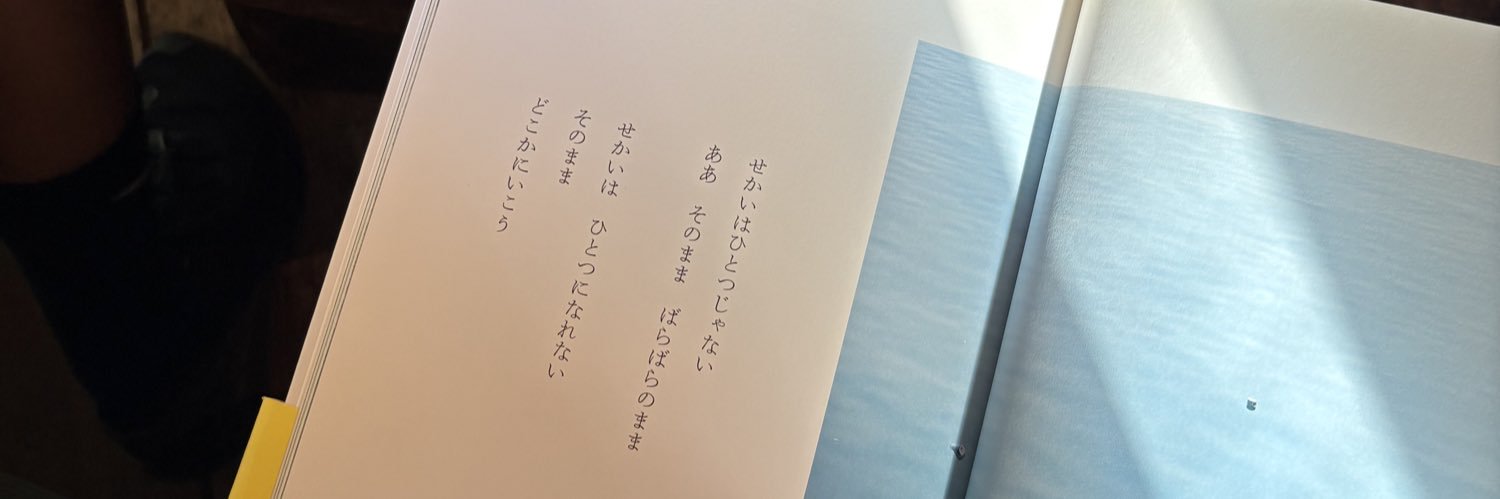 せかいはひとつじゃない
ああ　そのまま　ばらばらのまま
せかいは　ひとつになれない
そのまま
どこかにいこう